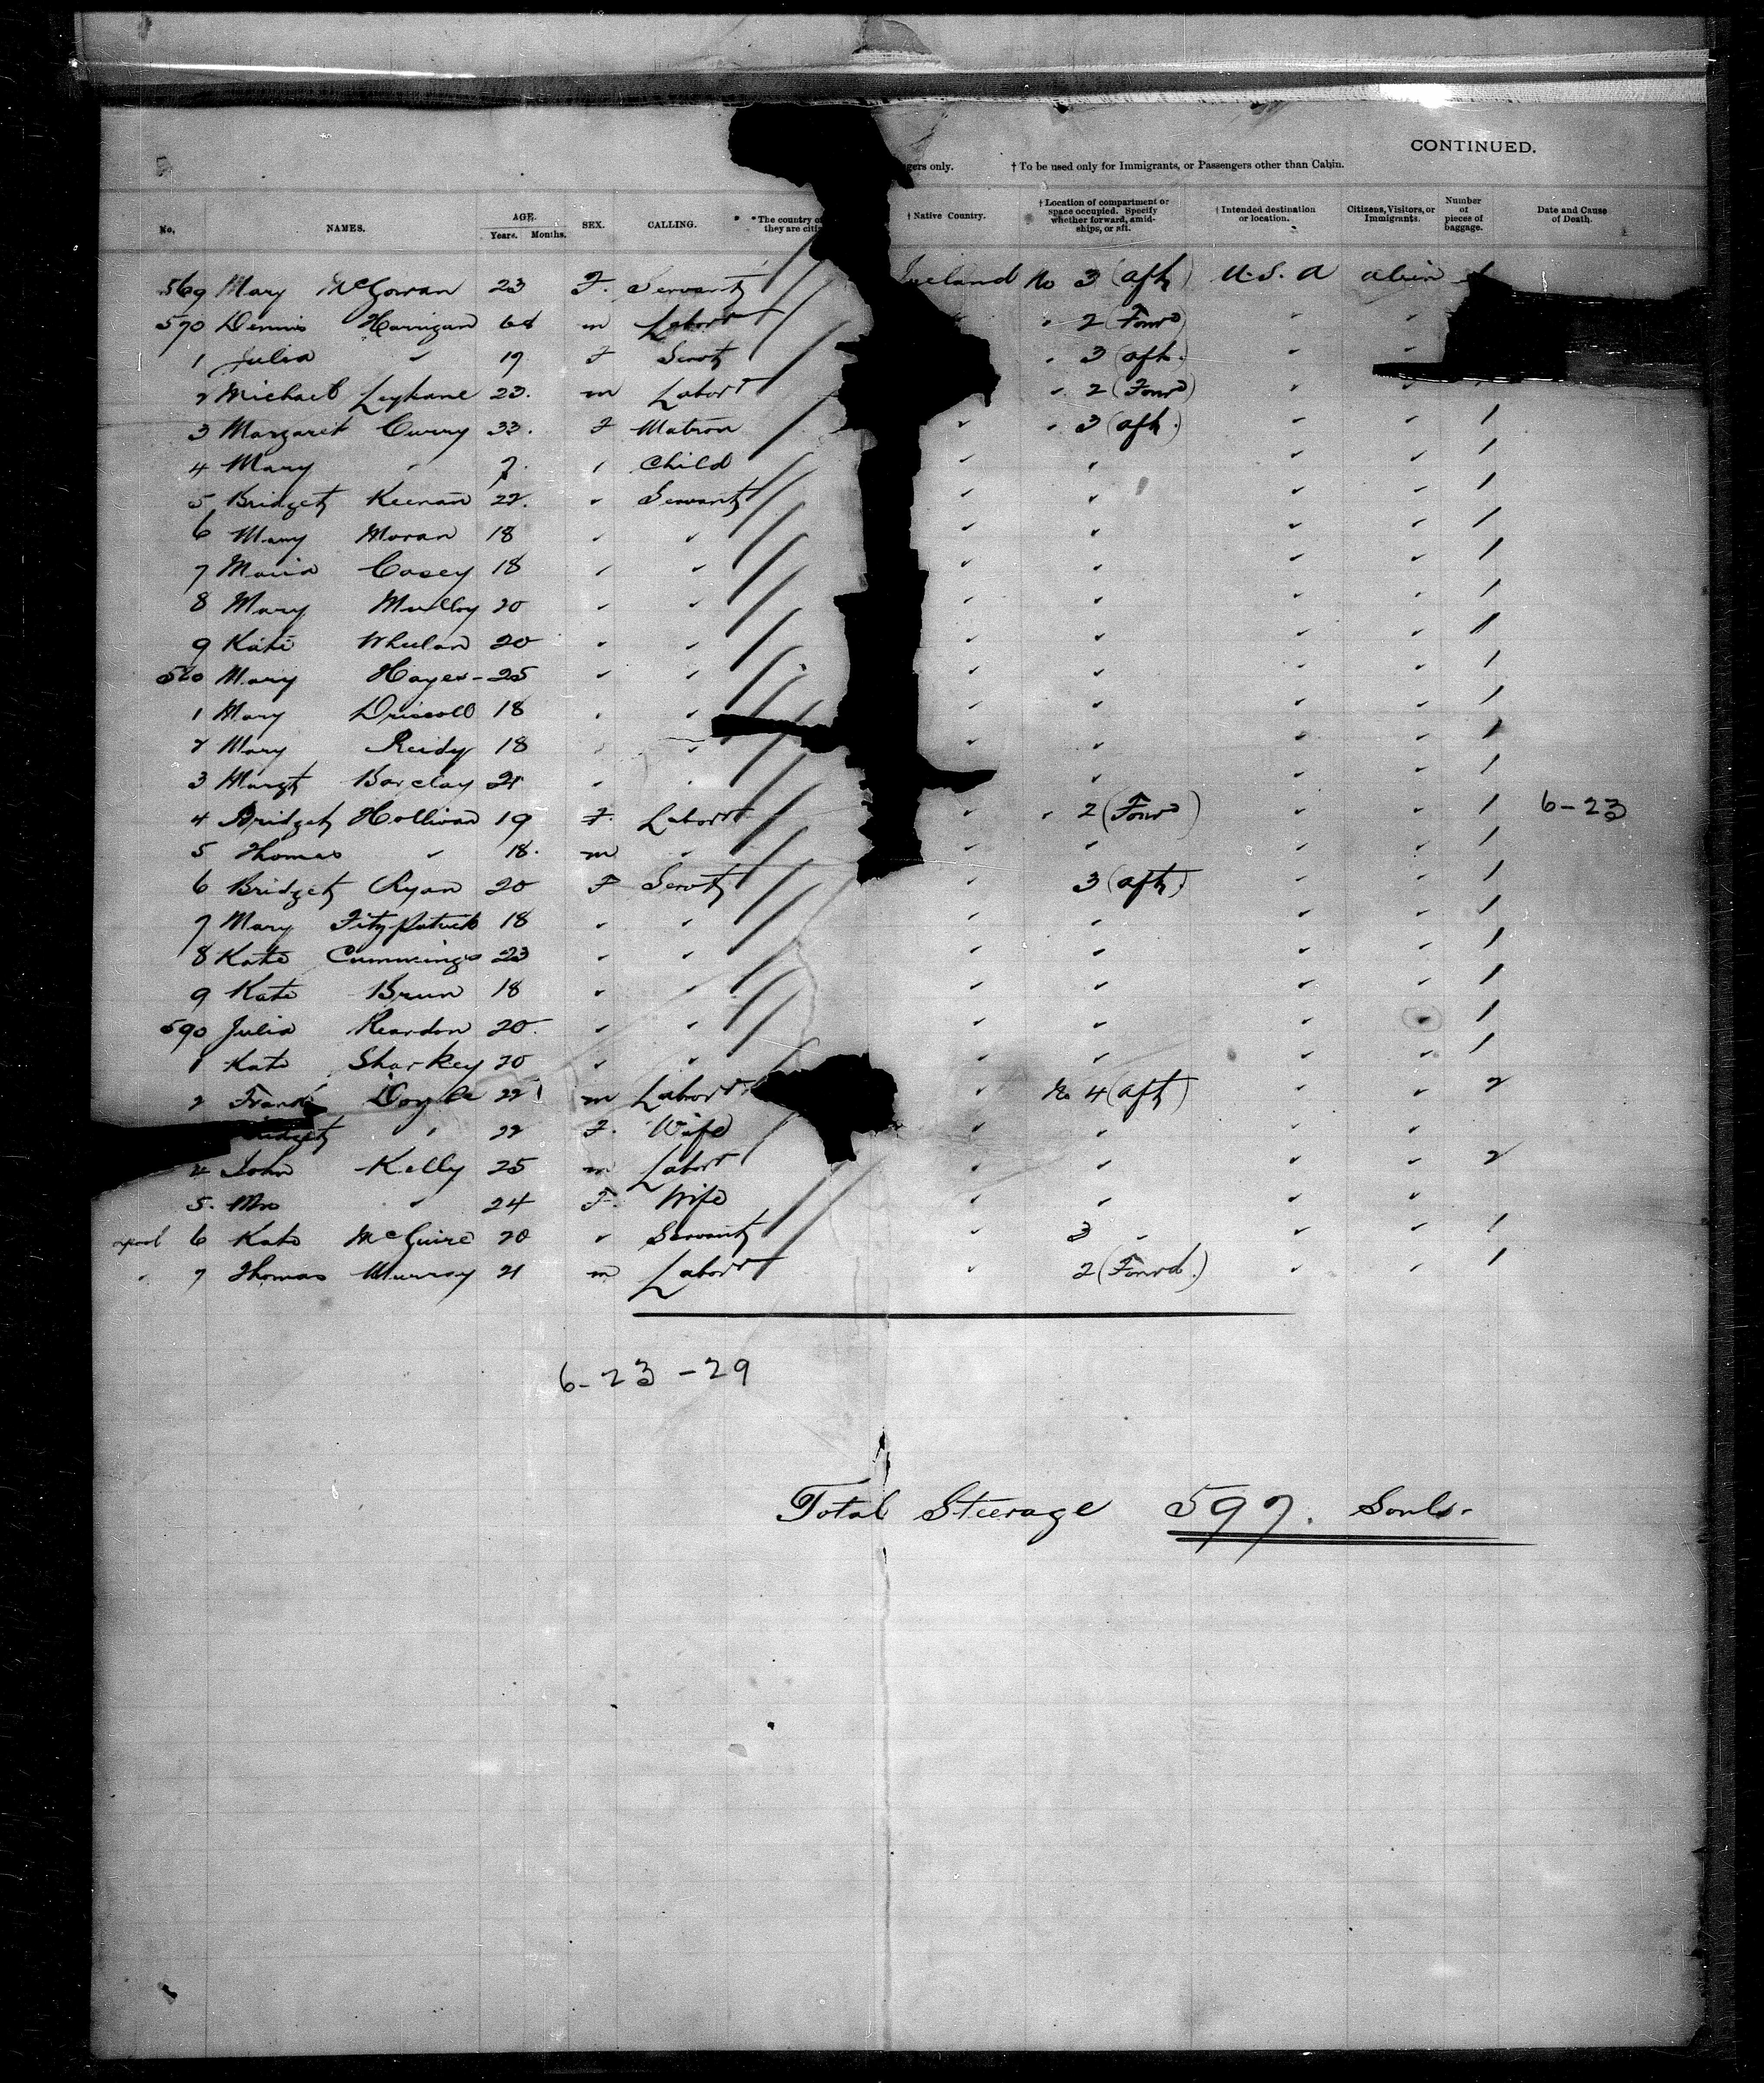 CONTINUED.
gers only. † To be used only for Immigrants, or Passengers other than Cabin.
No. NAMES. AGE. Years. Months. SEX. CALLING. * The country of they are citi † Native Country. † Location of compartment or space occupied. Specify whether forward, amid-ships, or aft. † Intended destination or location. Citizens, Visitors, or Immigrants. Number of pieces of baggage. Date and Cause of Death.
569 Mary McGowan 23 F. Servant Ireland No 3 (aft) U.S.A
570 Dennis Harrigan 68 m Labor " 2 (Forwd)
1 Julia " 19 F Servt " 3 (aft.
2 Michael Leyhane 23. m Labor " 2 (Forwd)
3 Margaret Curry 33. F Matron " " 3 (aft.) " " 1
4 Mary " 7. " Child " " " " 1
5 Bridget Keenan 22. " Servant " " " " 1
6 Mary Moran 18 " " " " " " 1
7 Maria Casey 18 " " " " " " 1
8 Mary Mulloy 20 " " " " " " 1
9 Kate Whelan 20 " " " " " " 1
580 Mary Hayes - 25 " " " " " " 1
1 Mary Driscoll 18 " " " " " " 1
2 Mary Reidy 18 " " " " " " 1
3 Margt Barclay 21 " " " " " 1
4 Bridget Hollivan 19 F. Labor " " 2 (Forwd) " " 1 6-23
5 Thomas " 18. m " " " " " 1
6 Bridget Ryan 20 F Servt " 3 (aft). " " 1
7 Mary Fitzpatrick 18 " " " " " " 1
8 Kate Cummings 23 " " " " " " 1
9 Kate Brun 18 " " " " " " 1
590 Julia Reardon 20. " " " " " " 1
1 Kate Sharkey 20 " " " " " " 1
2 Frank Doyle 22 m Labor " No 4 (aft) " " 2
" 22 F. Wife " " " "
4 John Kelly 25 m Labor " " " " 2
5. Mrs " 24 F. Wife " " " "
6 Kate McGuire 20 " Servant " 3 " " " 1
" 7 Thomas Murray 21 m Labor " 2 (Forwd.) " " 1
6-23-29
Total Steerage 597. Souls.